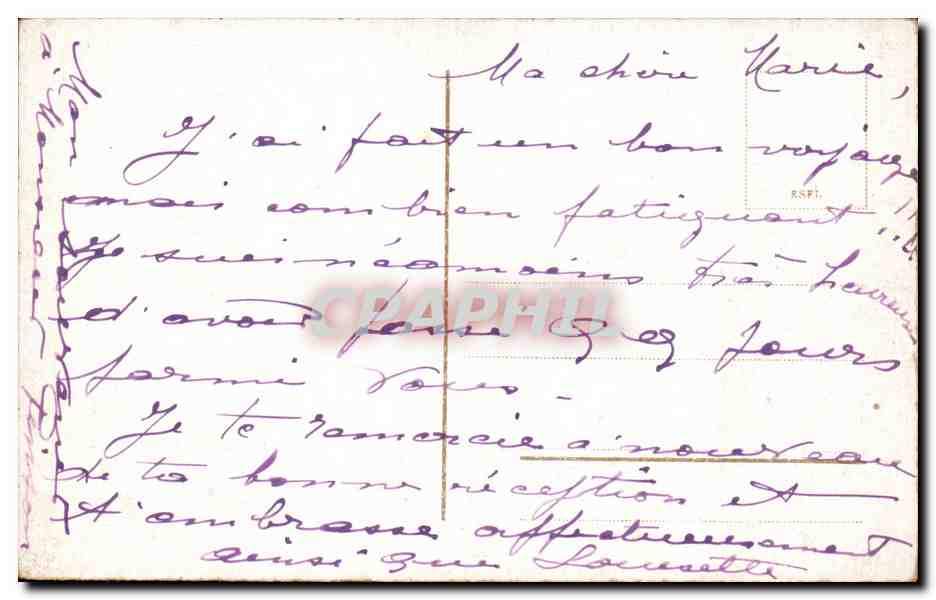 Ma chère Marie,
J'ai fait un bon voyage
mais combien fatiguant!!!
Je suis néamoins très heureuse
d'avoir passé qq jours
parmi vous.
Je te remercie à nouveau
de ta bonne réception et
t'embrasse affectueusement
ainsi que Louisette
Mon
à
CPAPHIL